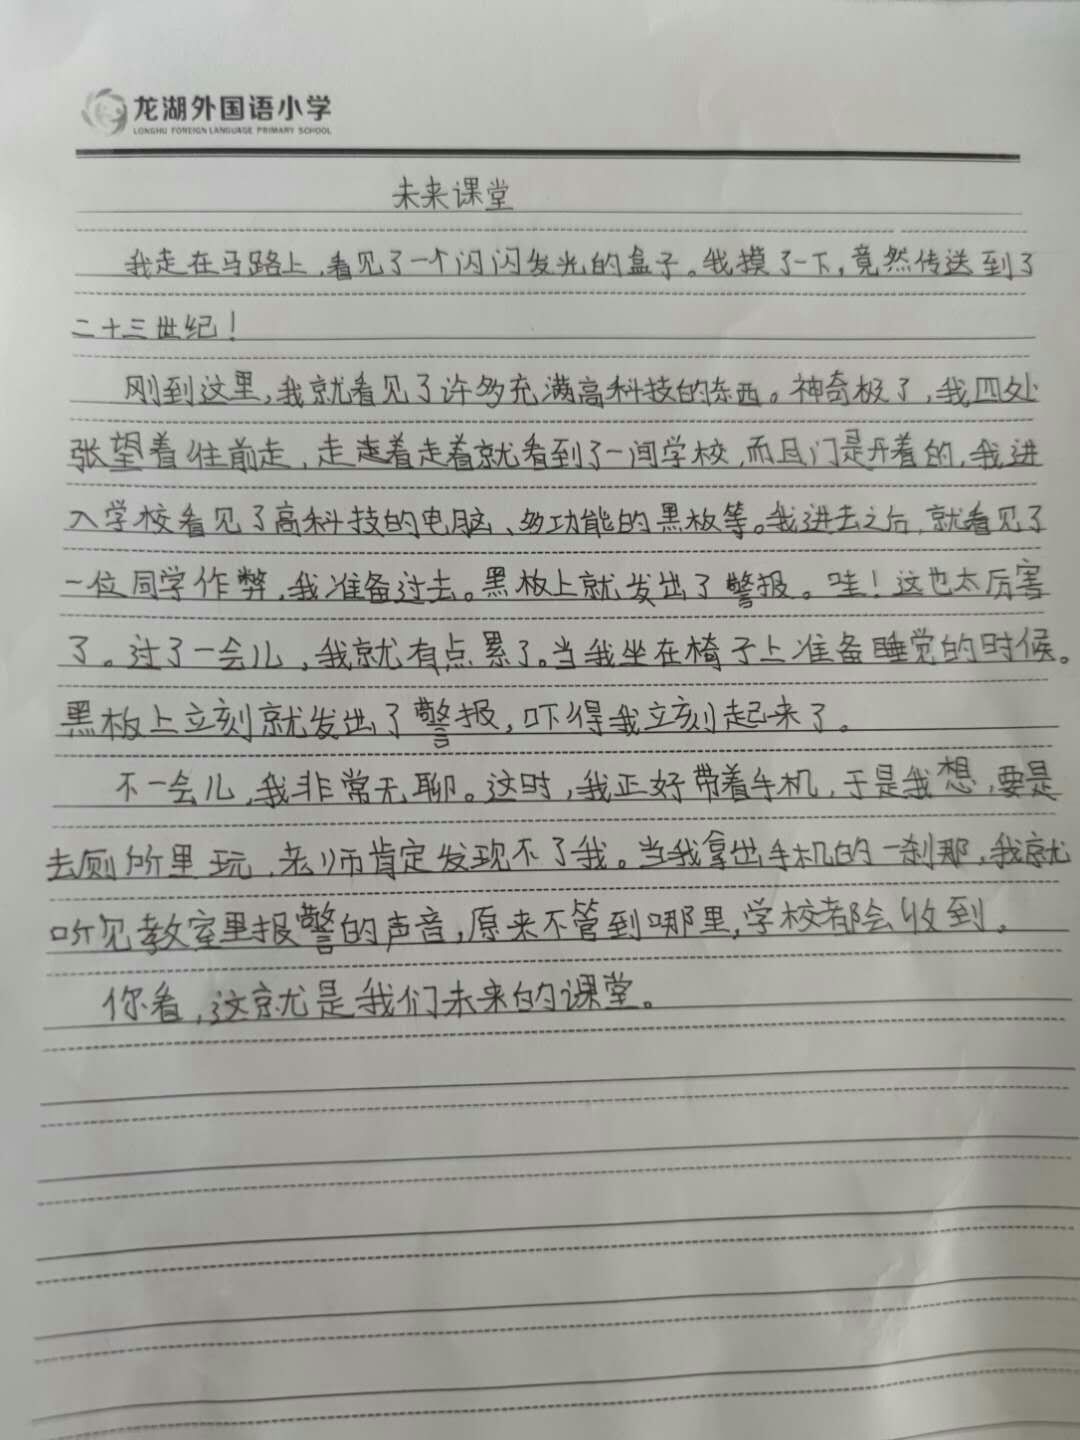 龙湖外国语小学
LONGHU FOREIGN LANGUAGE PRIMARY SCHOOL
未来课堂
我走在马路上,看见了一个闪闪发光的盒子。我摸了一下,竟然传送到了
二十三世纪!
刚到这里,我就看见了许多充满高科技的东西。神奇极了,我四处
张望着往前走,走走着走着就看到了一间学校,而且门是开着的,我进
入学校看见了高科技的电脑、多功能的黑板等。我进去之后,就看见了
一位同学作弊,我准备过去。黑板上就发出了警报。哇!这也太厉害
了。过了一会儿,我就有点累了。当我坐在椅子上准备睡觉的时候。
黑板上立刻就发出了警报,吓得我立刻起来了。
不一会儿,我非常无聊。这时,我正好带着手机,于是我想,要是
去厕所里玩,老师肯定发现不了我。当我拿出手机的一刹那,我就
听见教室里报警的声音,原来不管到哪里,学校都会收到。
你看,这就是我们未来的课堂。